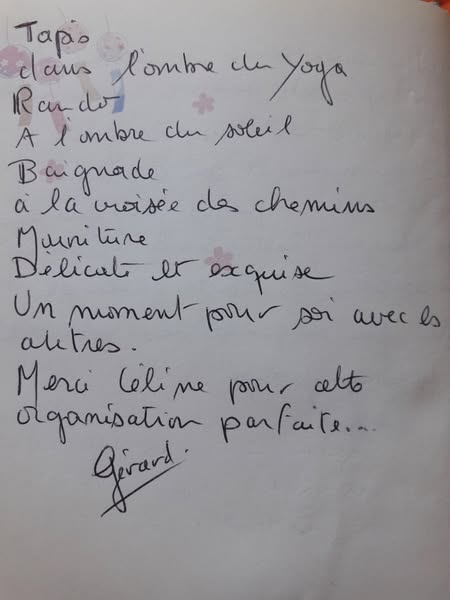 Tapis
dans l'ombre du Yoga
Rando
A l'ombre du soleil
Baignade
à la croisée des chemins
Murniture
Délicate et exquise
Un moment pour soi avec les
autres.
Merci Céline pour cette
organisation parfaite...
Gérard.